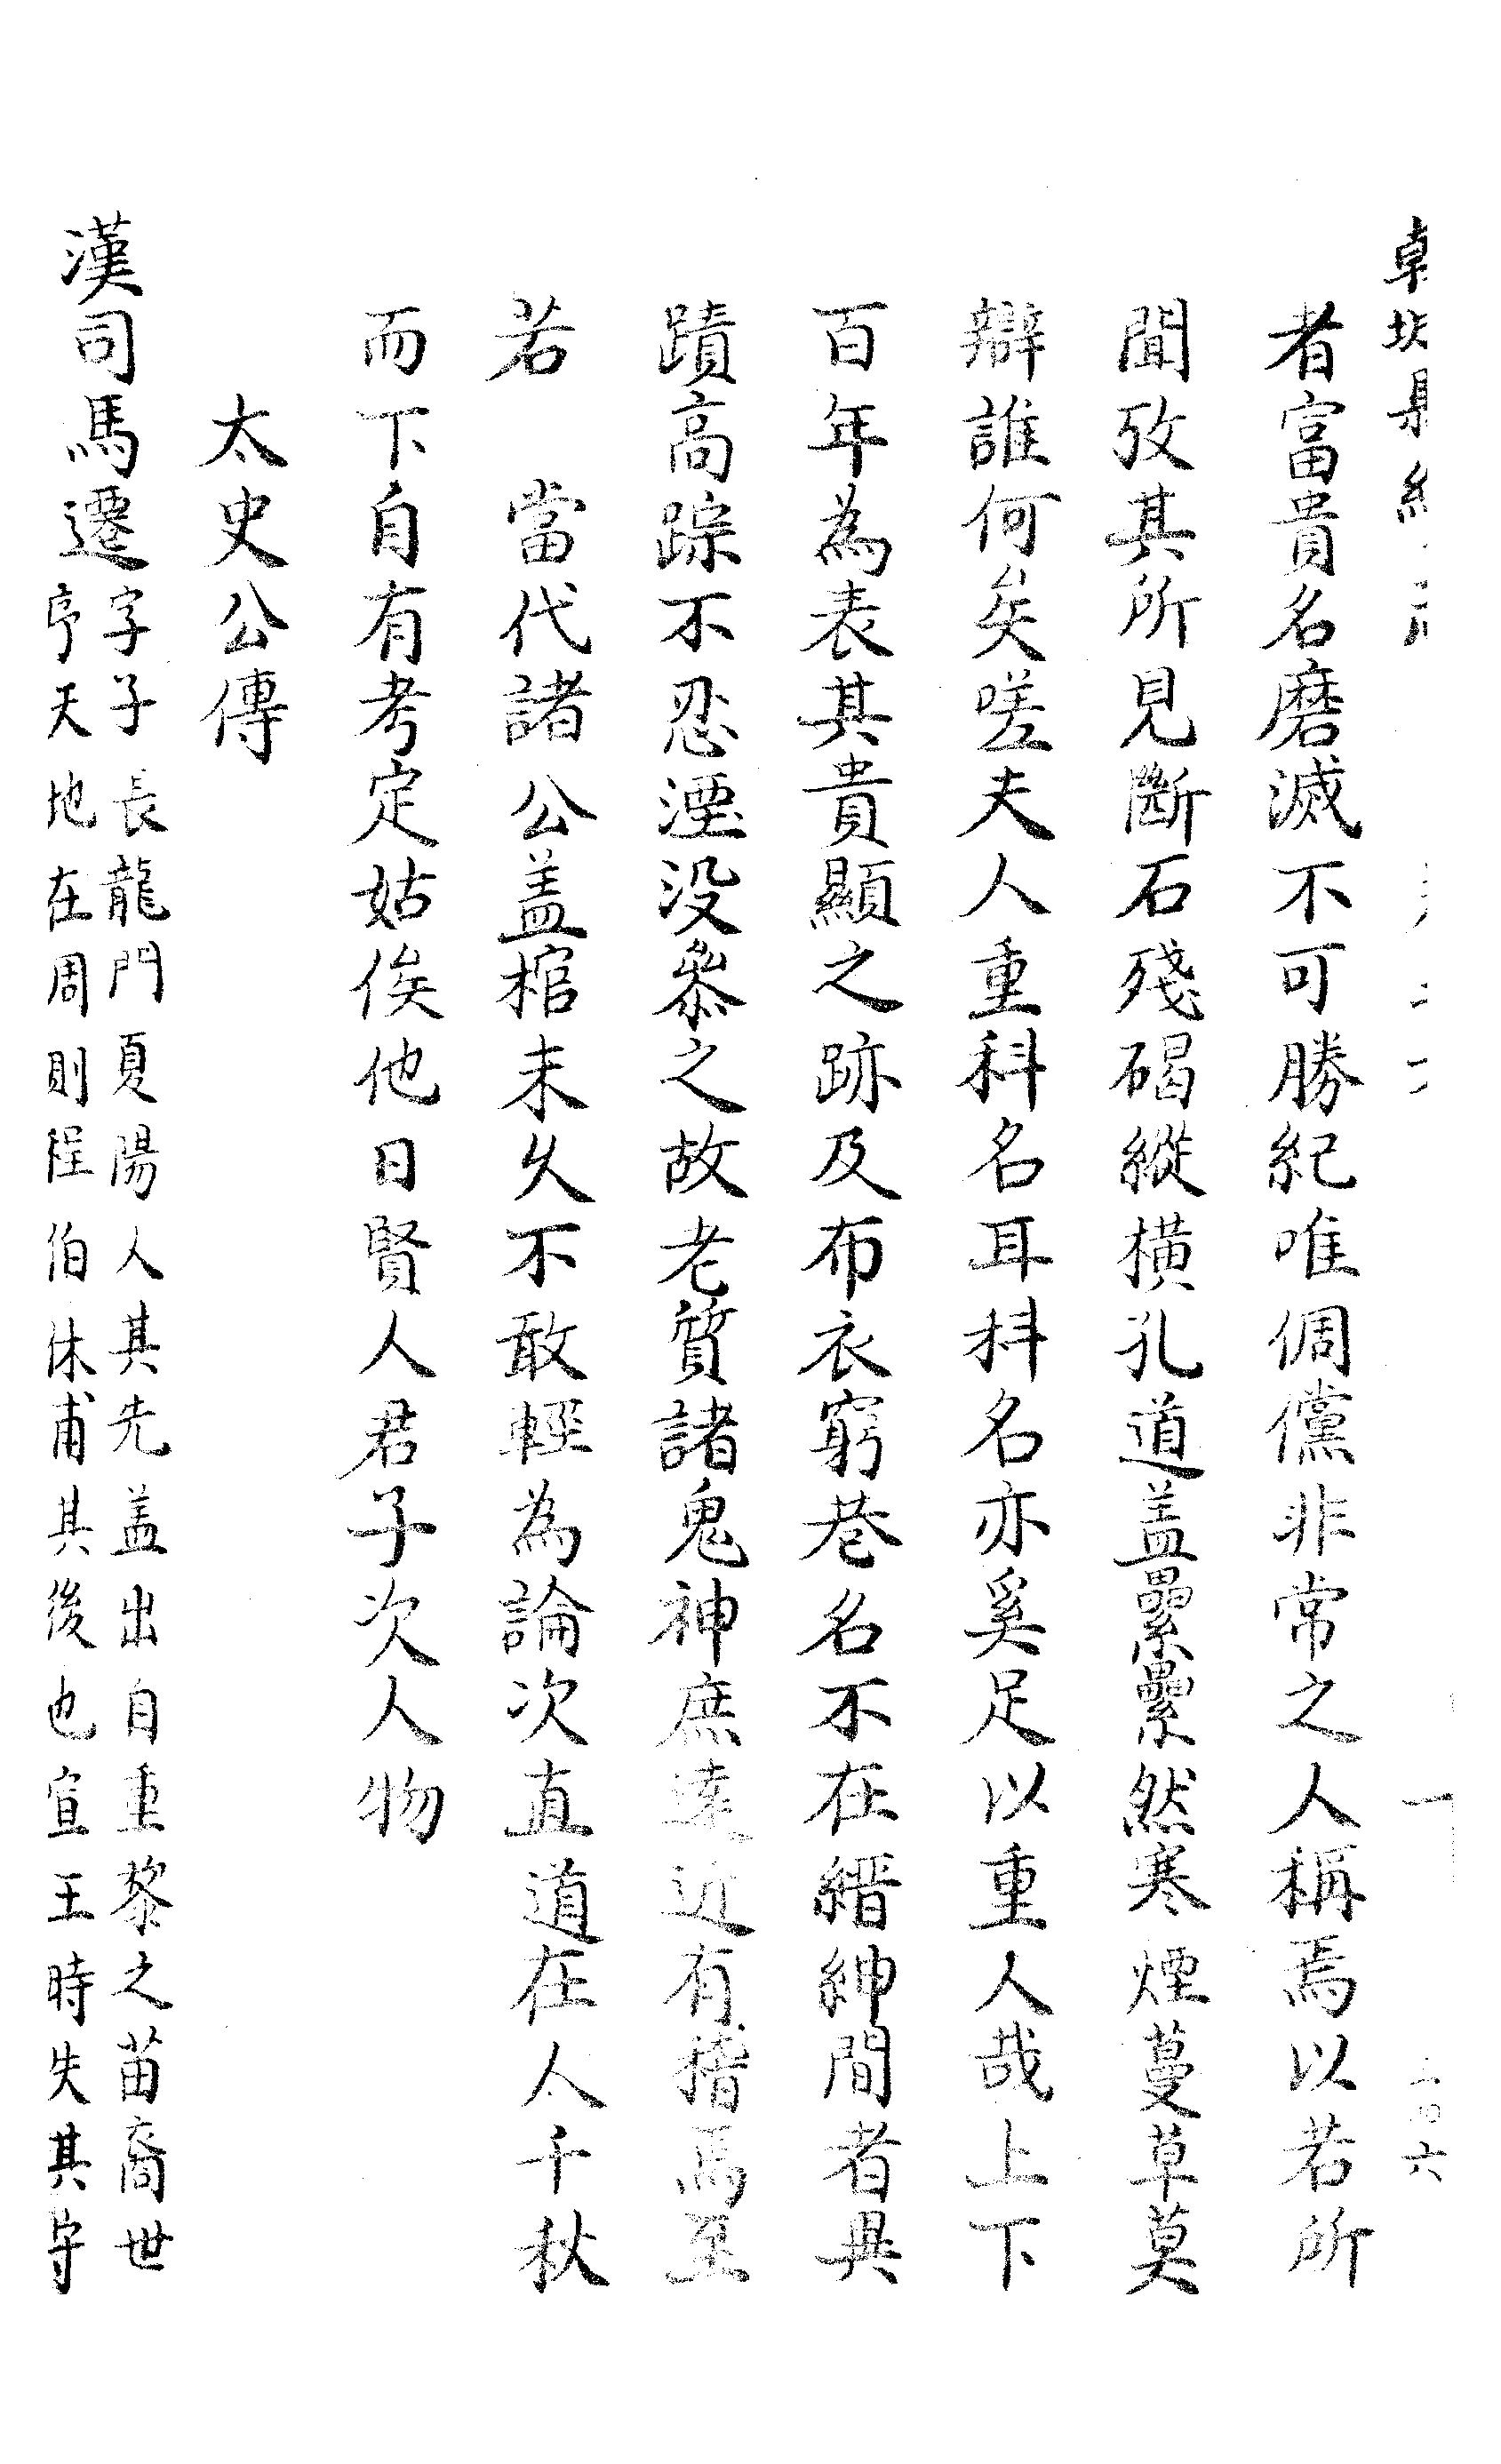 者富貴名磨滅不可勝紀唯倜儻非常之人稱焉以若所
聞攷其所見斷石殘碣縱橫孔道盖纍纍然寒煙蔓草莫
辯誰何矣嗟夫人重科名耳科名亦奚足以重人哉上下
百年為表其貴顯之跡及布衣窮巷名不在縉紳間者與
蹟高踪不忍湮没叅之故老質諸鬼神庶遠近有稽焉至
若　當代諸公盖棺未久不敢輕為論次直道在人千秋
而下自有考定姑俟他日賢人君子次人物
太史公傳
漢司馬遷字子長龍門夏陽人其先盖出自重黎之苗裔世
序天地在周則程伯休甫其後也宣王時失其守